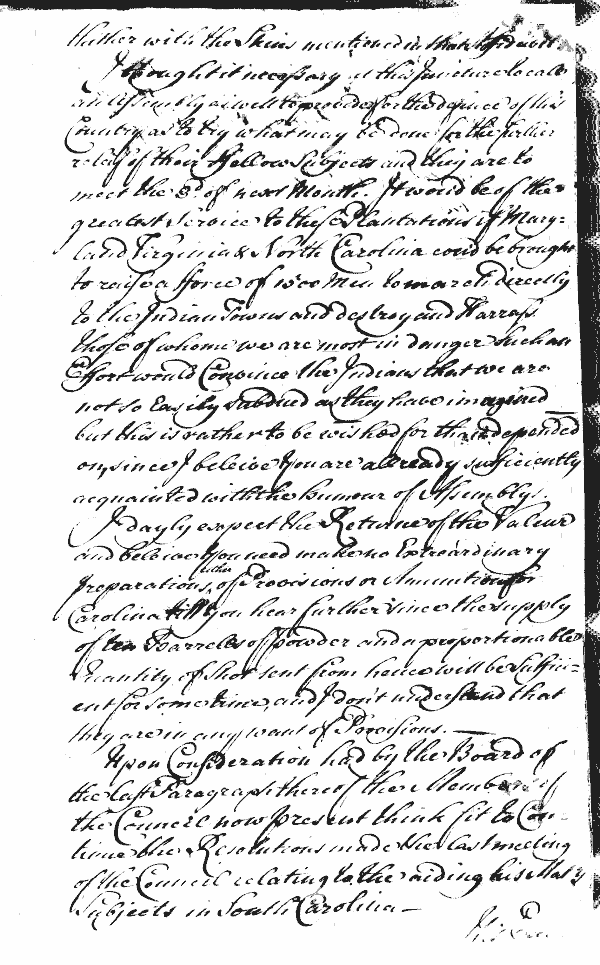 thither with the Skins mentioned in that Affidavit
I thought it necessary at this Juncture to call
an Assembly as well to provide for the defence of this
Country as to try what may be done for the further
releif of their Fellow Subjects and they are to
meet the 3d of next Month. It would be of the
greatest Service to these Plantations if Mary-
land Virginia & North Carolina could be brought
to raise a fforce of 1500 Men to march directly
to the Indian Towns and destroy and Harrass
those of whome we are most in danger such an
Effort would Convince the Indians that we are
not so Easily subdued as they have imagined
but this is rather to be wished for than depended
on, since I beleive you are already sufficiently
acquainted with the humour of Assemblys.
I dayly expect the Returne of the Valeur
and beleive you need make no Extraordinary
preparations either of Provisions or Amunition for
Carolina till you hear further since the supply
of ten Barreles of powder and a proportionable
Quantity of Shot sent from hence will be Suffici-
ent for some time and I don't understand that
they are in any want of Provisions.
Upon Consideration had by the Board of
the last Paragraph thereof the Members of
the Council now present think fit to Con-
tinue the Resolutions made the last meeting
of the Council relating to the aiding his Maty's
Subjects in South Carolina